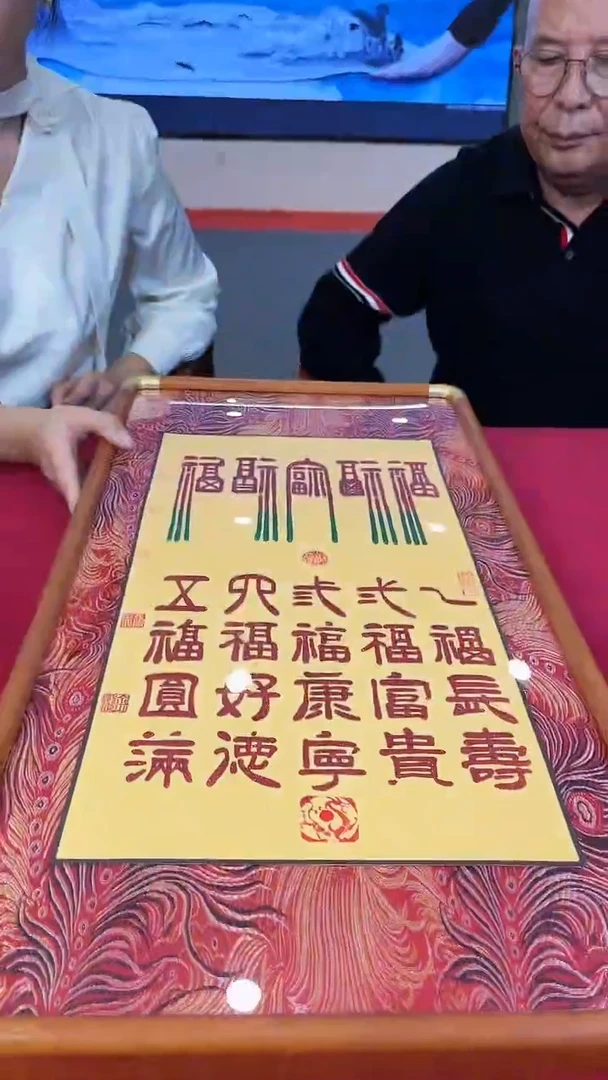 福富福
一福長壽
二福富貴
三福康寧
四福好德
五福圓滿